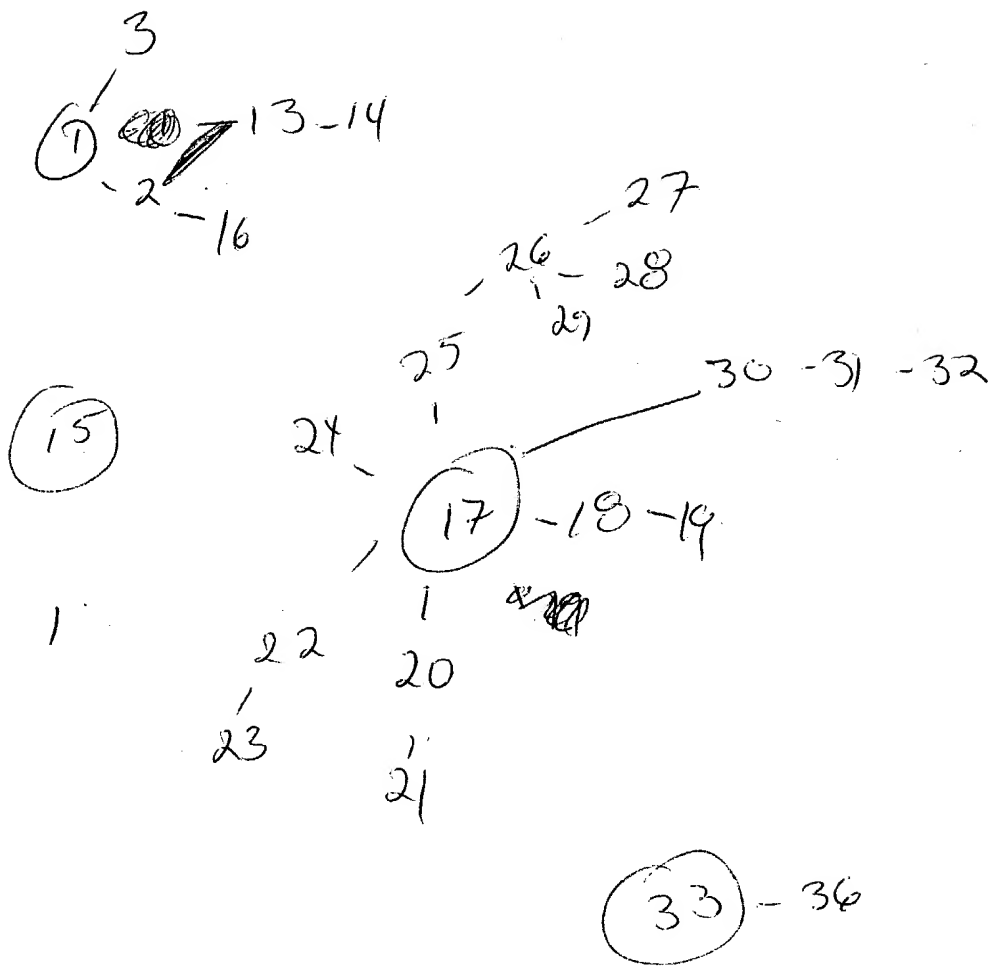 3
1 13-14
2
-16
27
26 - 28
29
25
30 -31 -32
24
15
17 -18 -19
1
22
20
23
21
33 - 36